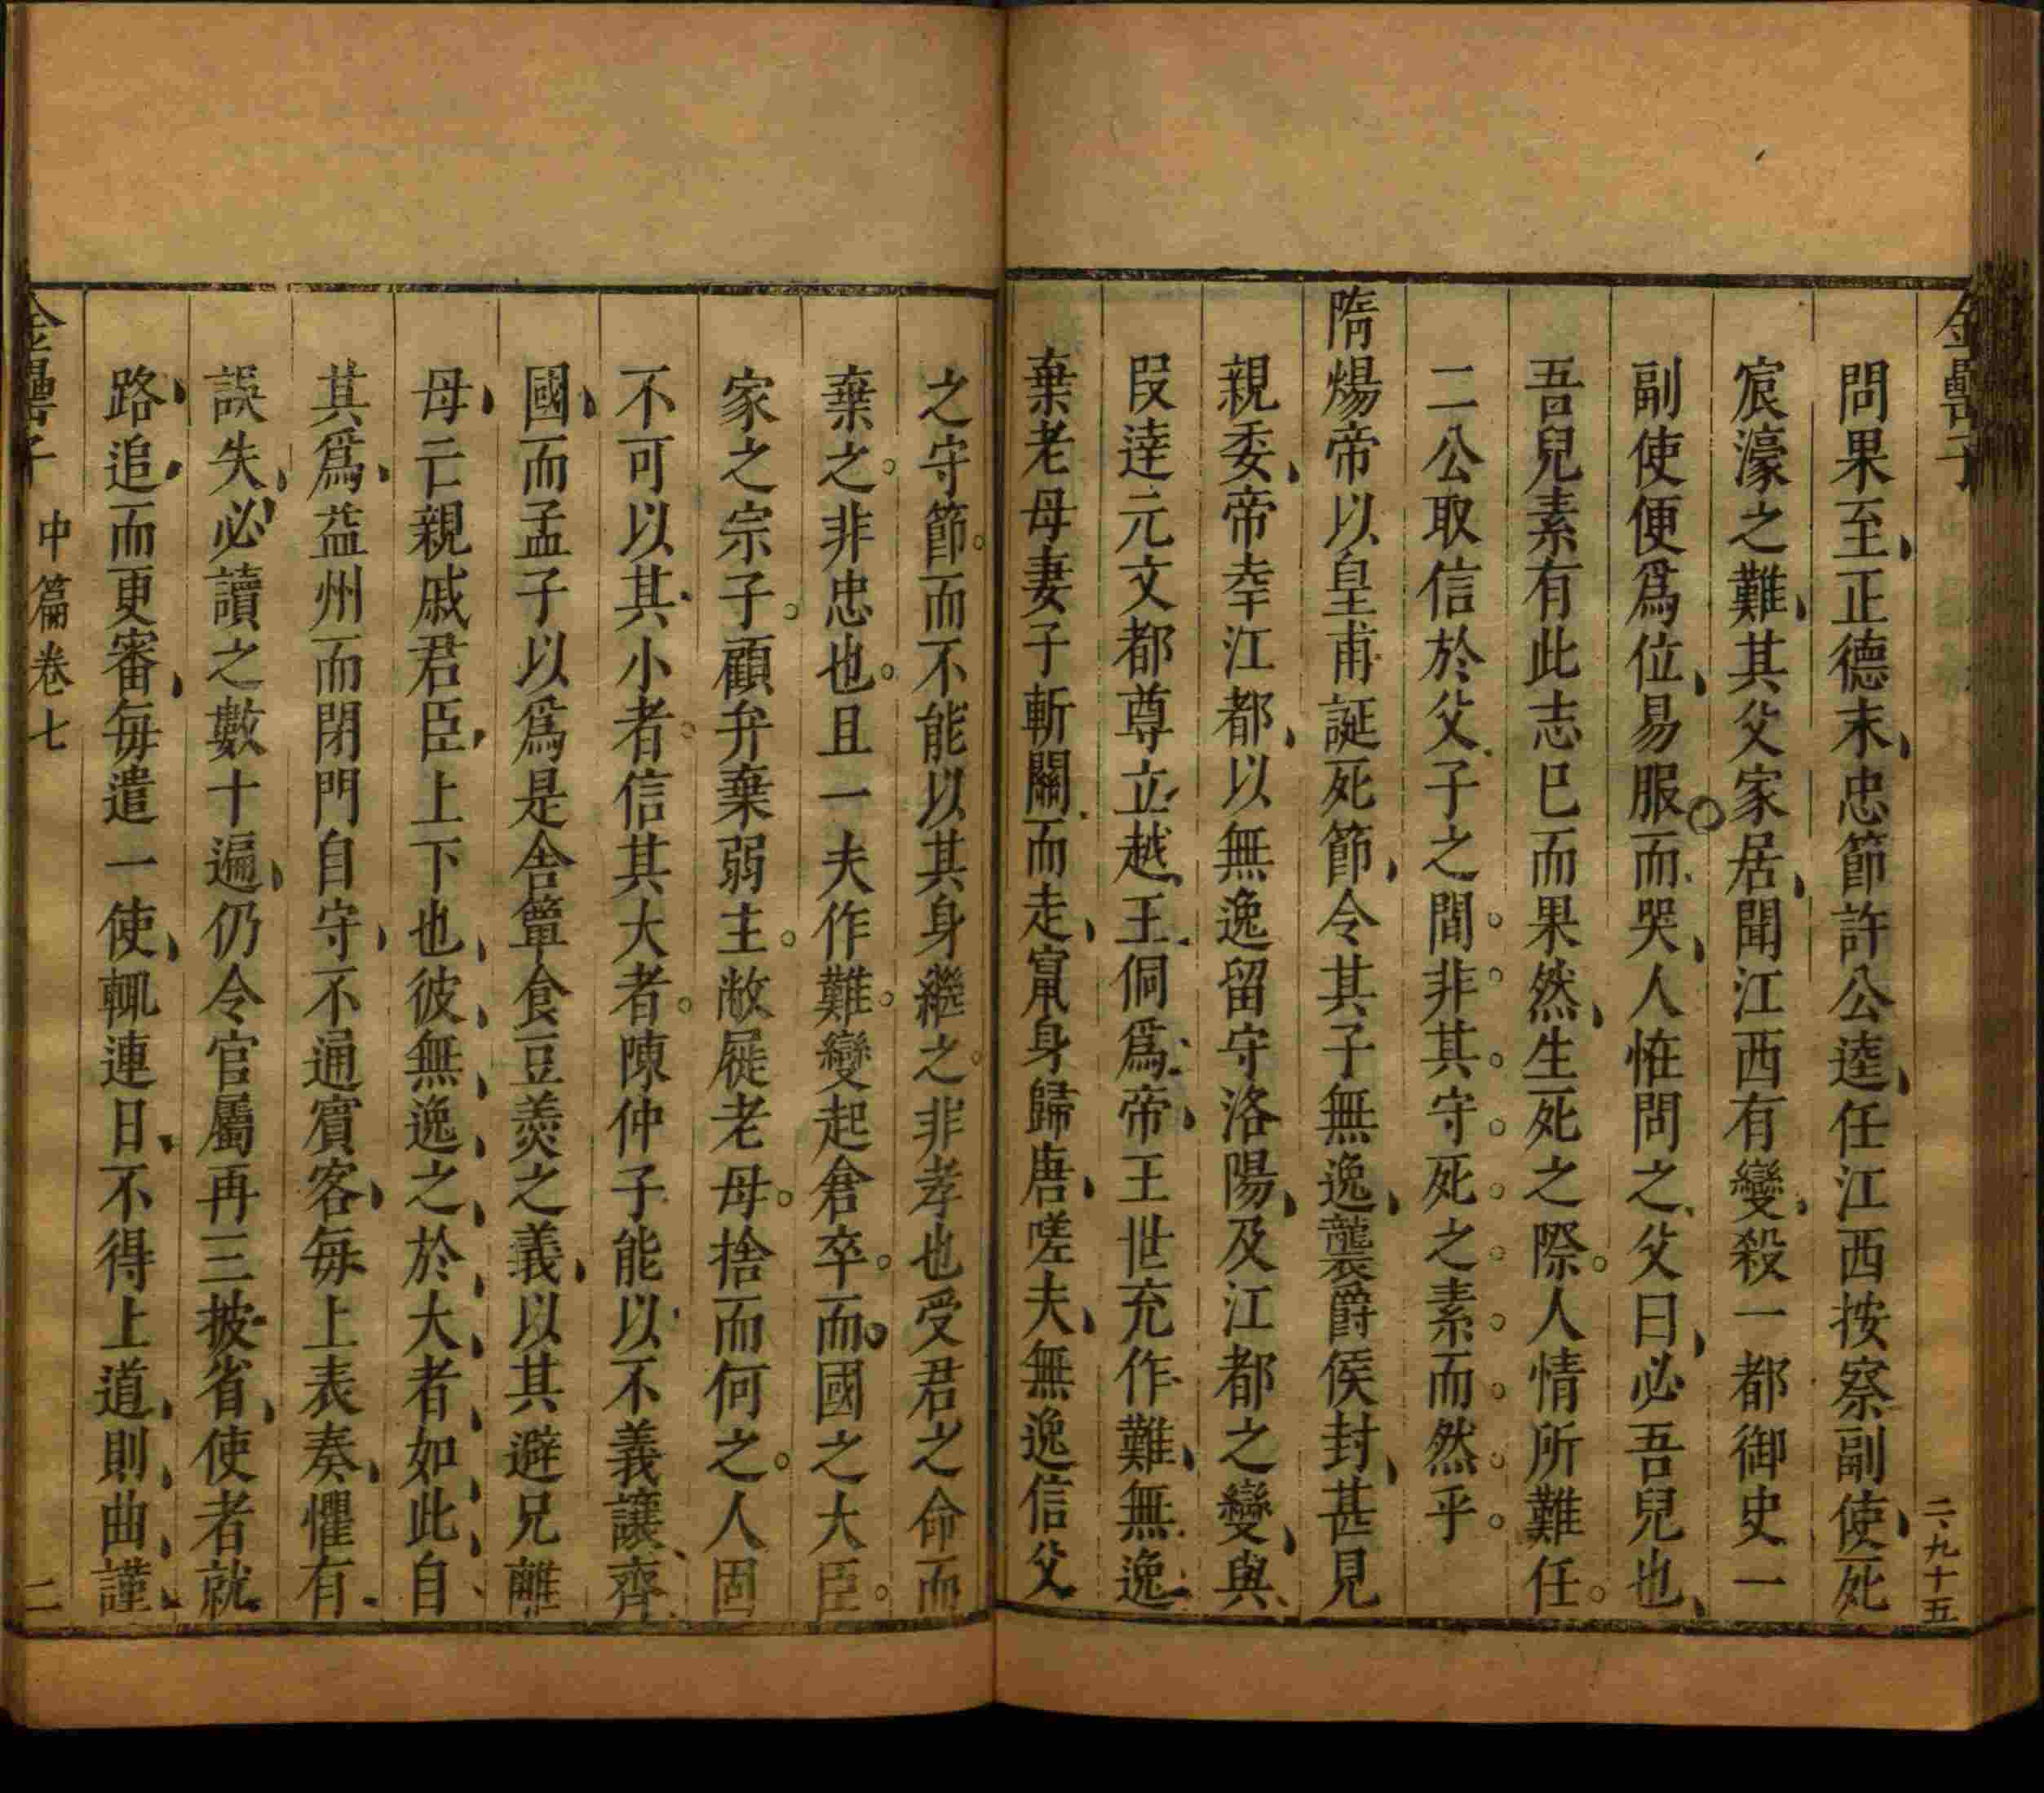 問果至正德末忠節許公逵任江西按察副使死
宸濠之難其父家居聞江西有變殺一都御史一
副使便爲位易服而哭人怪問之父曰必吾兒也
吾兒素有此志巳而果然生死之際人情所難任
二公取信於父子之間非其守死之素而然乎
隋煬帝以皇甫誕死節令其子無逸襲爵侯封甚見
親委帝幸江都以無逸留守洛陽及江都之變與
段達元文都尊立越王侗爲帝王世充作難無逸
棄老母妻子斬關而走竄身歸唐嗟夫無逸信父
之守節而不能以其身繼之非孝也受君之命而
棄之非忠也且一夫作難變起倉卒而國之大臣
家之宗子顧弁棄弱主敝屣老母捨而何之人固
不可以其小者信其大者陳仲子能以不義讓齊
國而孟子以爲是舍簞食豆羮之義以其避兄離
母亡親戚君臣上下也彼無逸之於大者如此自
其爲益州而閉門自守不通賓客每上表奏懼有
誤失必讀之數十遍仍令官屬再三披省使者就
路追而更審每遣一使輒連日不得上道則曲謹
中篇卷七
二